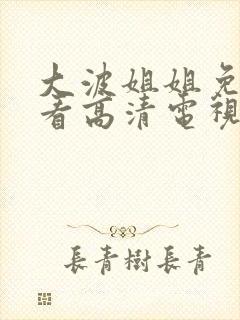 大波姐姐免
看高清電視
長青樹長青